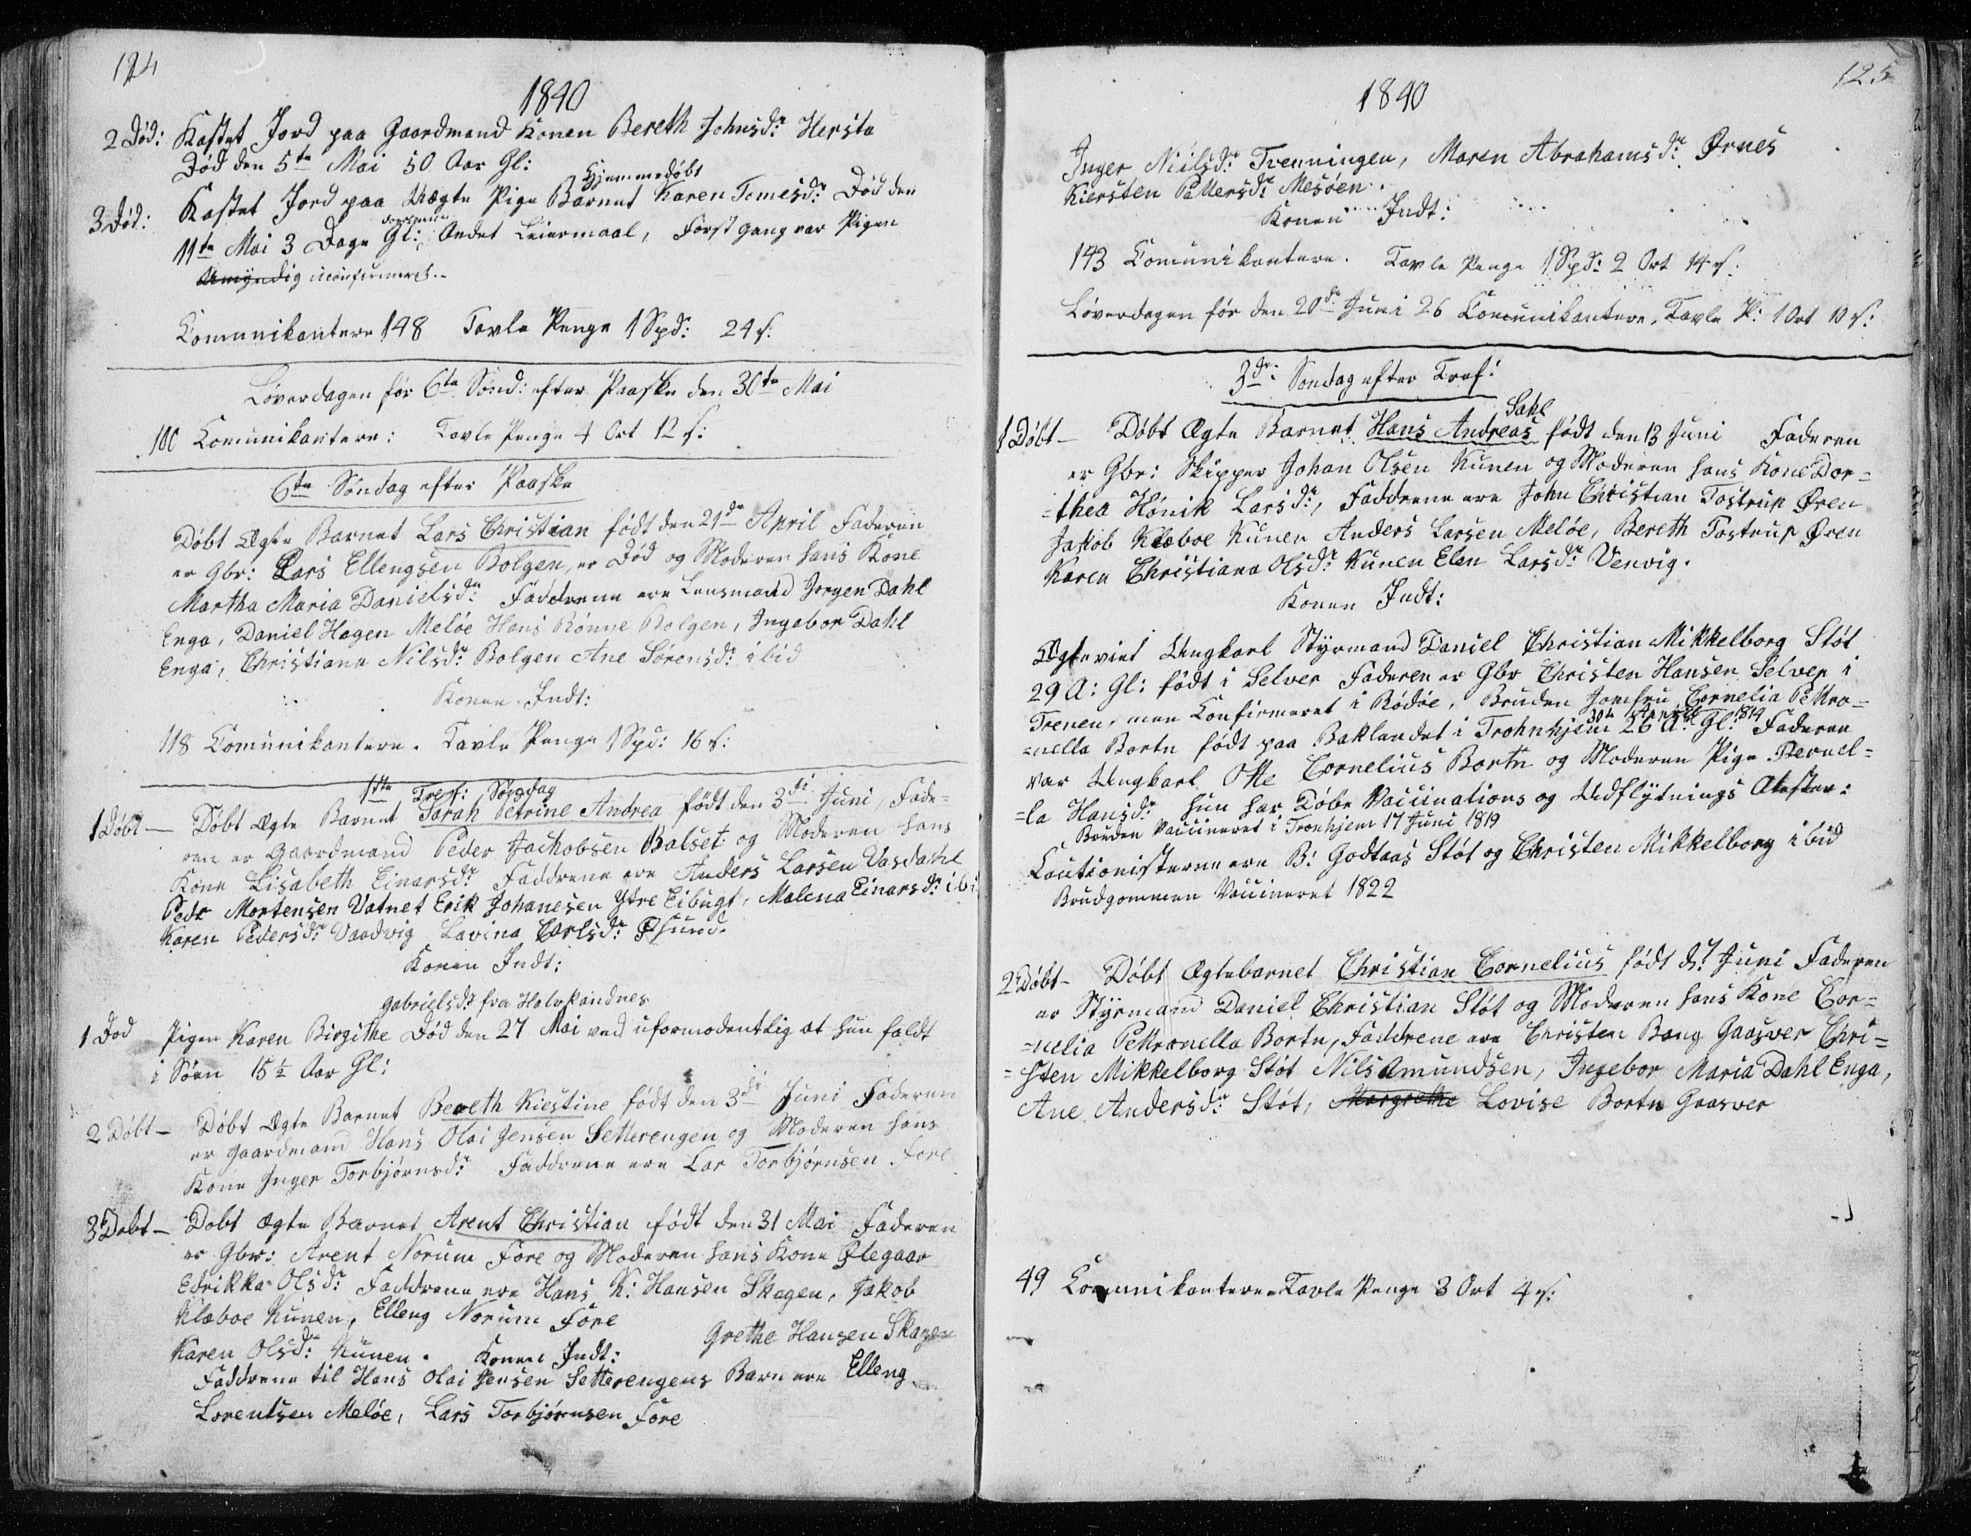 124
1840
2 Død: Kastet Jord paa Gaardmand Konen Bereth Johnsdr: Hersta
Død den 5te Mai 50 Aar Gl:
Hjemmedøbt
3 Død: Kastet Jord paa Uægte Pige Barnet Karen Tomesdr: Død den
11te Mai 3 Dage Gl: Andet Leiermaal, Først gang var Pigen
Umyndig uconfirmeret.
Comunikantere 148 Tavle Penge 1 Spd: 24 s:
Løverdagen før 6te Sønd: efter Paaske den 30te Mai
100 Comunikantere: Tavle Penge 4 Ort 12 s:
6te Søndag efter Paaske
Døbt Ægte Barnet Lars Christian født den 21de April Faderen
er Gbr: Lars Ellengsen Bolgen, er Død og Moderen hans Kone
Martha Maria Danielsdr: Faddrene ere Lensmand Jørgen Dahl
Enga, Daniel Hagen Meløe Hans Rønne Bolgen, Ingebor Dahl
Enga, Christiana Nilsdr: Bolgen Ane Sørensdr: ibid
Konen Indt:
118 Comunikantere. Tavle Penge 1 Spd: 16 s:
1ste Tref: Søndag
1 Døbt — Døbt Ægte Barnet Sarah Petrine Andrea født den 3di Juni, Fade-
ren er Gaardmand Peder Jachobsen Balset og Moderen hans
Kone Lisabeth Einarsdr: Faddrene ere Anders Larsen Vasdahl
Pedr Mortensen Vatnet Erik Johanesen Ytre Eibugt, Malena Einarsdr: ibi
Karen Pedersdr: Vaadvig Lavina Carlsdr: Øsund.
Konen Indt:
Gabrielsdr fra Halvkandnes
1 Død Pigen Karen Birgithe Død den 27 Mai ved uformodentlig at hun faldt
i Søen 15½ Aar Gl:
2 Døbt — Døbt Ægte Barnet Bereth Kiestine født den 3di Juni Faderen
er Gaardmand Hans Olai Jensen Setterengen og Moderen hans
Kone Inger Torbjørnsdr: Faddrene ere Lar Torbjørnsen Fore
3 Døbt — Døbt Ægte Barnet Arent Christian født den 31 Mai Faderen
er Gbr: Arent Norum Fore og Moderen hans Kone Olegaar
Edrikka Olsdr: Faddrene ere Hans K: Hansen Skagen, Jakob
Klæboe Kunen, Elleng Norum Fore Grethe Hansen Skagen
Karen Olsdr: Kunen. Konen Indt:
Faddrene til Hans Olai Jensen Setterengens Barn ere Elleng
Lorentsen Meløe, Lars Torbjørnsen Fore
125
1840
Inger Niilsdr: Trenningen, Maren Abrahamsdr: Ørnes
Kiersten Pettersdr: Mesøen.
Konen Indt:
143 Comunikantere. Tavle Penge 1 Spd: 2 Ort 14 s:
Løverdagen før den 20de Juni 26 Comunikantere, Tavle P: 1 Ort 10 s:
3die Søndag efter Tref:
Dahl
1 Døbt — Døbt Ægte Barnet Hans Andreas født den 13 Juni Faderen
er Gbr: Skipper Johan Olsen Kunen og Moderen hans Kone Dor=
=thea Hønik Larsdr:, Faddrene ere John Christian Tostrup Øren
Jakob Klæboe Kunen Anders Larsen Meløe, Bereth Tostrup Øren
Karen Christiana Olsdr: Kunen Elen Larsdr: Venvig.
Konen Indt:
Ægteviet Ungkarl Styrmand Daniel Christian Mikkelborg Støt
29 A: Gl: født i Selver Faderen er Gbr Christen Hansen Selver i
Trenen, men Confirmeret i Rødøe, Bruden Jomfru Cornelia Pettro=
30te April 1814
=nella Bortn født paa Baklandet i Trohnhjem 26 A: Gl: Faderen
var Ungkarl Otte Cornelius Bortn og Moderen Pige Pernel=
=la Hansdr: hun har Døbe Vaccinations og Udflytnings Atester:
Bruden Vaccineret i Tronhjem 17 Juni 1819
Cautionisterne ere B: Godtaas Støt og Christen Mikkelborg ibid
Brudgommen Vaccineret 1822
2 Døbt — Døbt Ægtebarnet Christian Cornelius født d: 7 Juni Faderen
er Styrmand Daniel Christian Støt og Moderen hans Kone Cor=
=nelia Pettronella Bortn, Faddrene ere Christen Bang Gaasver Chri=
=sten Mikkelborg Støt Nils Amundsen, Ingebor Maria Dahl Enga,
Ane Andersdr: Støt, Margrethe Lovise Bortn Gaasver
49 Comunikantere Tavle Penge 3 Ort 4 s: